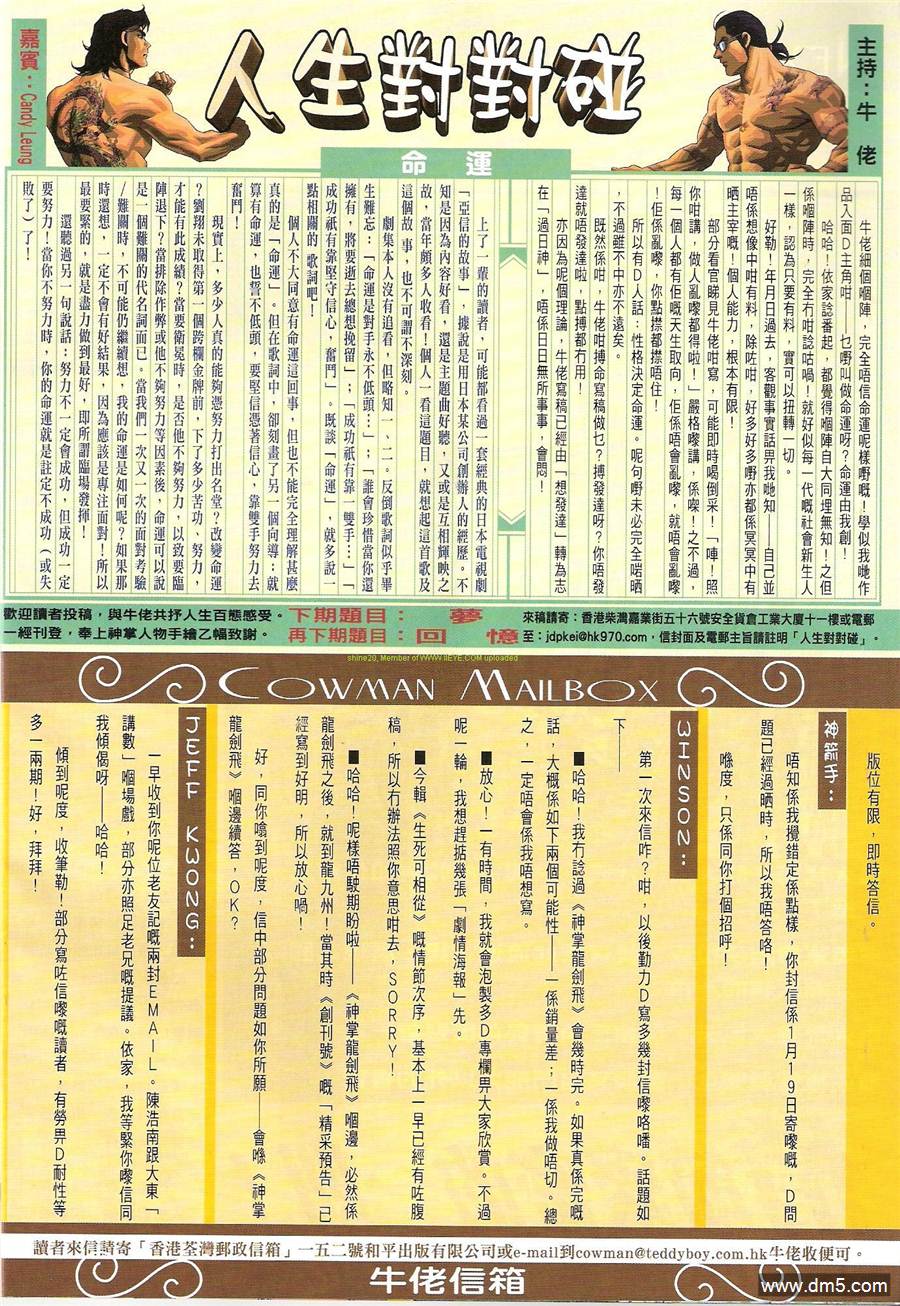 人生對對碰
主持：牛佬
嘉賓：Candy Leung
命運
牛佬細個嗰陣，完全唔信命運呢樣嘢嘅！學似我哋作
品入面D主角咁——乜嘢叫做命運呀？命運由我創！
哈哈！依家諗番起，都覺得嗰陣自大同埋無知！之但
係嗰陣時，完全冇咁諗咕喎！就好似每一代嘅社會新生人
一樣，認為只要有料，實可以扭轉一切。
好勒！年月日過去，客觀事實話畀我哋知——自己並
唔係想像中咁有料，除咗咁，好多好多嘢亦都係冥冥中有
晒主宰嘅！個人能力，根本有限！
部分看官睇見牛佬咁寫，可能即時喝倒采！「唓！照
你咁講，做人亂嚟都得啦！」嚴格嚟講，係㗎！之不過，
每一個人都有佢嘅天生取向，佢係唔會亂嚟，就唔會亂嚟
！佢係亂嚟，你點㩒都㩒唔住！
所以有D人話：性格決定命運。呢句嘢未必完全啱晒
，不過雖不中亦不遠矣。
既然係咁，牛佬咁搏命寫稿做乜？搏發達呀？你唔發
達就唔發達啦，點搏都冇用！
亦因為呢個理論，牛佬寫稿已經由「想發達」轉為志
在「過日神」，唔係日日無所事事，會悶！
上了一輩的讀者，可能都看過一套經典的日本電視劇
「亞信的故事」，據說是用日本某公司創辦人的經歷。不
知是因為內容好看，還是主題曲好聽，又或是互相輝映之
故，當年頗多人收看！個人一看這題目，就想起這首歌及
這個故事，也不可謂不深刻。
劇集本人沒有追看，但略知一、二。反倒歌詞似乎畢
生難忘：「命運是對手永不低頭…」；「誰會珍惜當你還
擁有，將要逝去總想挽留」；「成功祇有靠一雙手…」「
成功祇有靠堅守信心，奮鬥」。既談「命運」，就多說一
點相關的「歌詞吧！
個人不大同意有命運這回事，但也不能完全理解甚麼
真的是「命運」。但在歌詞中，卻刻畫了另一個向導：就
算有命運，也誓不低頭，要堅信憑著信心，靠雙手努力去
奮鬥！
現實上，多少人真的能夠憑努力打出名堂？改變命運
？劉翔未取得第一個跨欄金牌前，下了多少苦功、努力，
才能有此成績？當要衛冕時，是否他不夠努力，以致要臨
陣退下？當排除作弊或他不夠努力等因素後，命運可以說
是一個難關的代名詞而已。當我們一次又一次的面對考驗
/難關時，不可能仍繼續想，我的命運是如何呢？如果那
時還想，一定不會有好結果，因為應該是專注面對！所以
最要緊的，就是盡力做到最好，即所謂臨場發揮！
還聽過另一句說話：努力不一定會成功，但成功一定
要努力！當你不努力時，你的命運就是註定不成功（或失
敗了）了！
歡迎讀者投稿，與牛佬共抒人生百態感受。
一經刊登，奉上神掌人物手繪乙幅致謝。
下期題目： 夢
再下期題目：回憶
來稿請寄：香港柴灣嘉業街五十六號安全貨倉工業大廈十一樓或電郵
至：jdpkei@hk970.com，信封面及電郵主旨請註明「人生對對碰」。
shine20, Member of WWW.IIEYE.COM uploaded
COWMAN MAILBOX
版位有限，即時答信。
神箭手：
唔知係我攪錯定係點樣，你封信係1月19日寄嚟嘅，D問
題已經過晒時，所以我唔答咯！
喺度，只係同你打個招呼！
WINSON：
第一次來信咋？咁，以後勤力D寫多幾封信嚟咯噃。話題如
下——
■哈哈！我冇諗過《神掌龍劍飛》會幾時完。如果真係完嘅
話，大概係如下兩個可能性——一係銷量差；一係我做唔切。總
之，一定唔會係我唔想寫。
■放心！一有時間，我就會泡製多D專欄畀大家欣賞。不過
呢一輪，我想趕掂幾張「劇情海報」先。
■今輯《生死可相從》嘅情節次序，基本上一早已經有咗腹
稿，所以冇辦法照你意思咁去，SORRY！
■哈哈！呢樣唔駛期盼啦——《神掌龍劍飛》嗰邊，必然係
龍劍飛之後，就到龍九州！當其時《創刊號》嘅「精采預告」已
經寫到好明，所以放心喎！
好，同你噏到呢度，信中部分問題如你所願——會喺《神掌
龍劍飛》嗰邊續答，OK？
JEFF KWONG：
一早收到你呢位老友記嘅兩封EMAIL。陳浩南跟大東「
講數」嗰場戲，部分亦照足老兄嘅提議。依家，我等緊你嚟信同
我傾偈呀——哈哈！
傾到呢度，收筆勒！部分寫咗信嚟嘅讀者，有勞畀D耐性等
多一兩期！好，拜拜！
讀者來信請寄「香港荃灣郵政信箱」一五二號和平出版有限公司或e-mail到cowman@teddyboy.com.hk牛佬收便可。
牛佬信箱
www.dm5.com